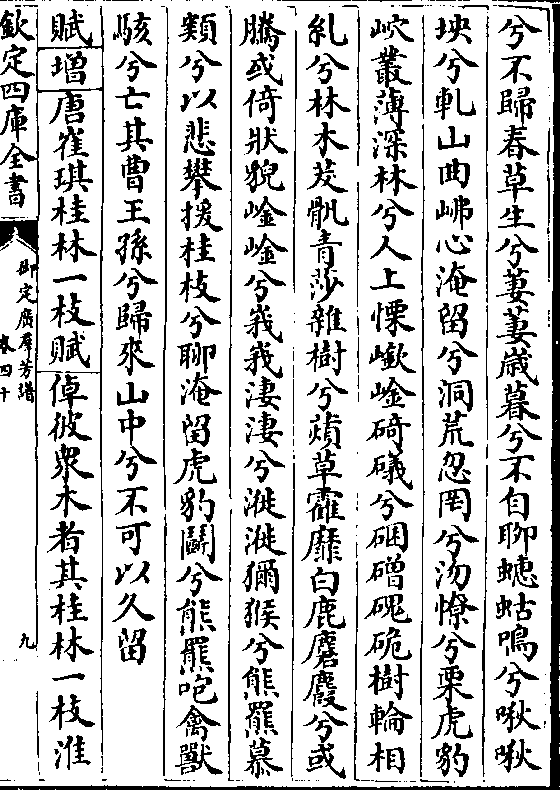 兮不歸春草生兮萋萋歲暮兮不自聊蟪蛄鳴兮啾啾
坱兮軋山曲岪心淹留兮洞荒忽罔兮沕憭兮栗虎豹
岤叢薄深林兮人上慄嶔崟碕礒兮硱磳磈硊樹輪相
糺兮林木茇骩青莎雜樹兮薠草靃靡白鹿麏麚兮或
騰或倚狀貌崯崯兮峩峩淒淒兮漇漇獼猴兮熊羆慕
類兮以悲攀援桂枝兮聊淹留虎豹鬭兮熊羆咆禽獸
駭兮亡其曹王孫兮歸來山中兮不可以久留
賦增唐崔琪桂林一枝賦倬彼衆木者其桂林一枝淮
欽定四庫全書
御定廣羣芳譜
卷四十
九